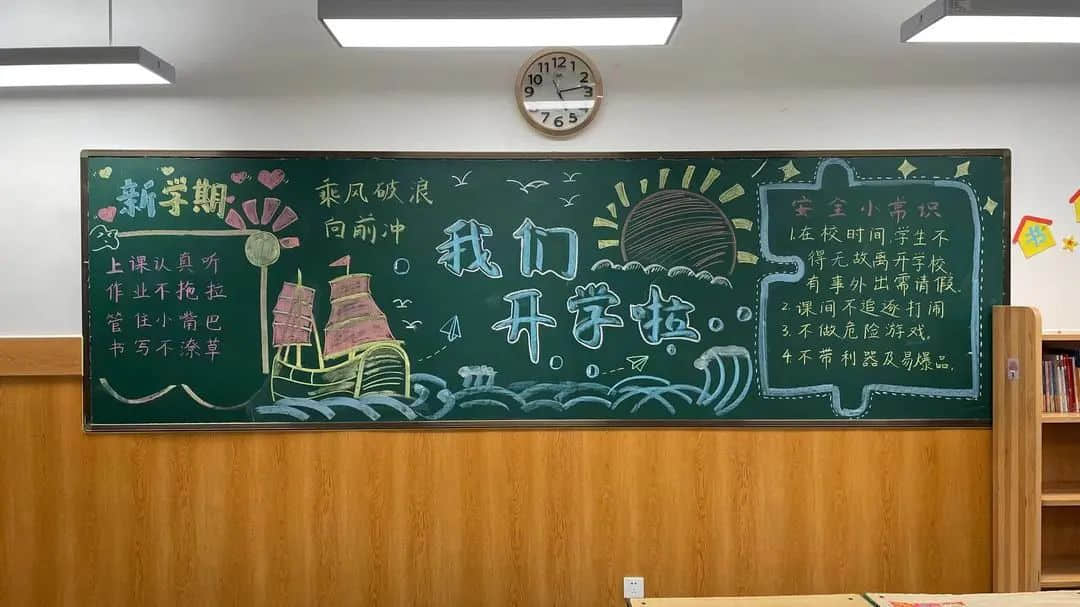 12
11
1
10
2
9
3
8
4
7
5
6
新学期
上课认真听
作业不拖拉
管住小嘴巴
书写不潦草
乘风破浪
向前冲
我们
开学啦
安全小常识
1.在校时间,学生不
得无故离开学校,
有事外出需请假.
2.课间不追逐打闹
3.不做危险游戏.
4.不带利器及易爆品.
书